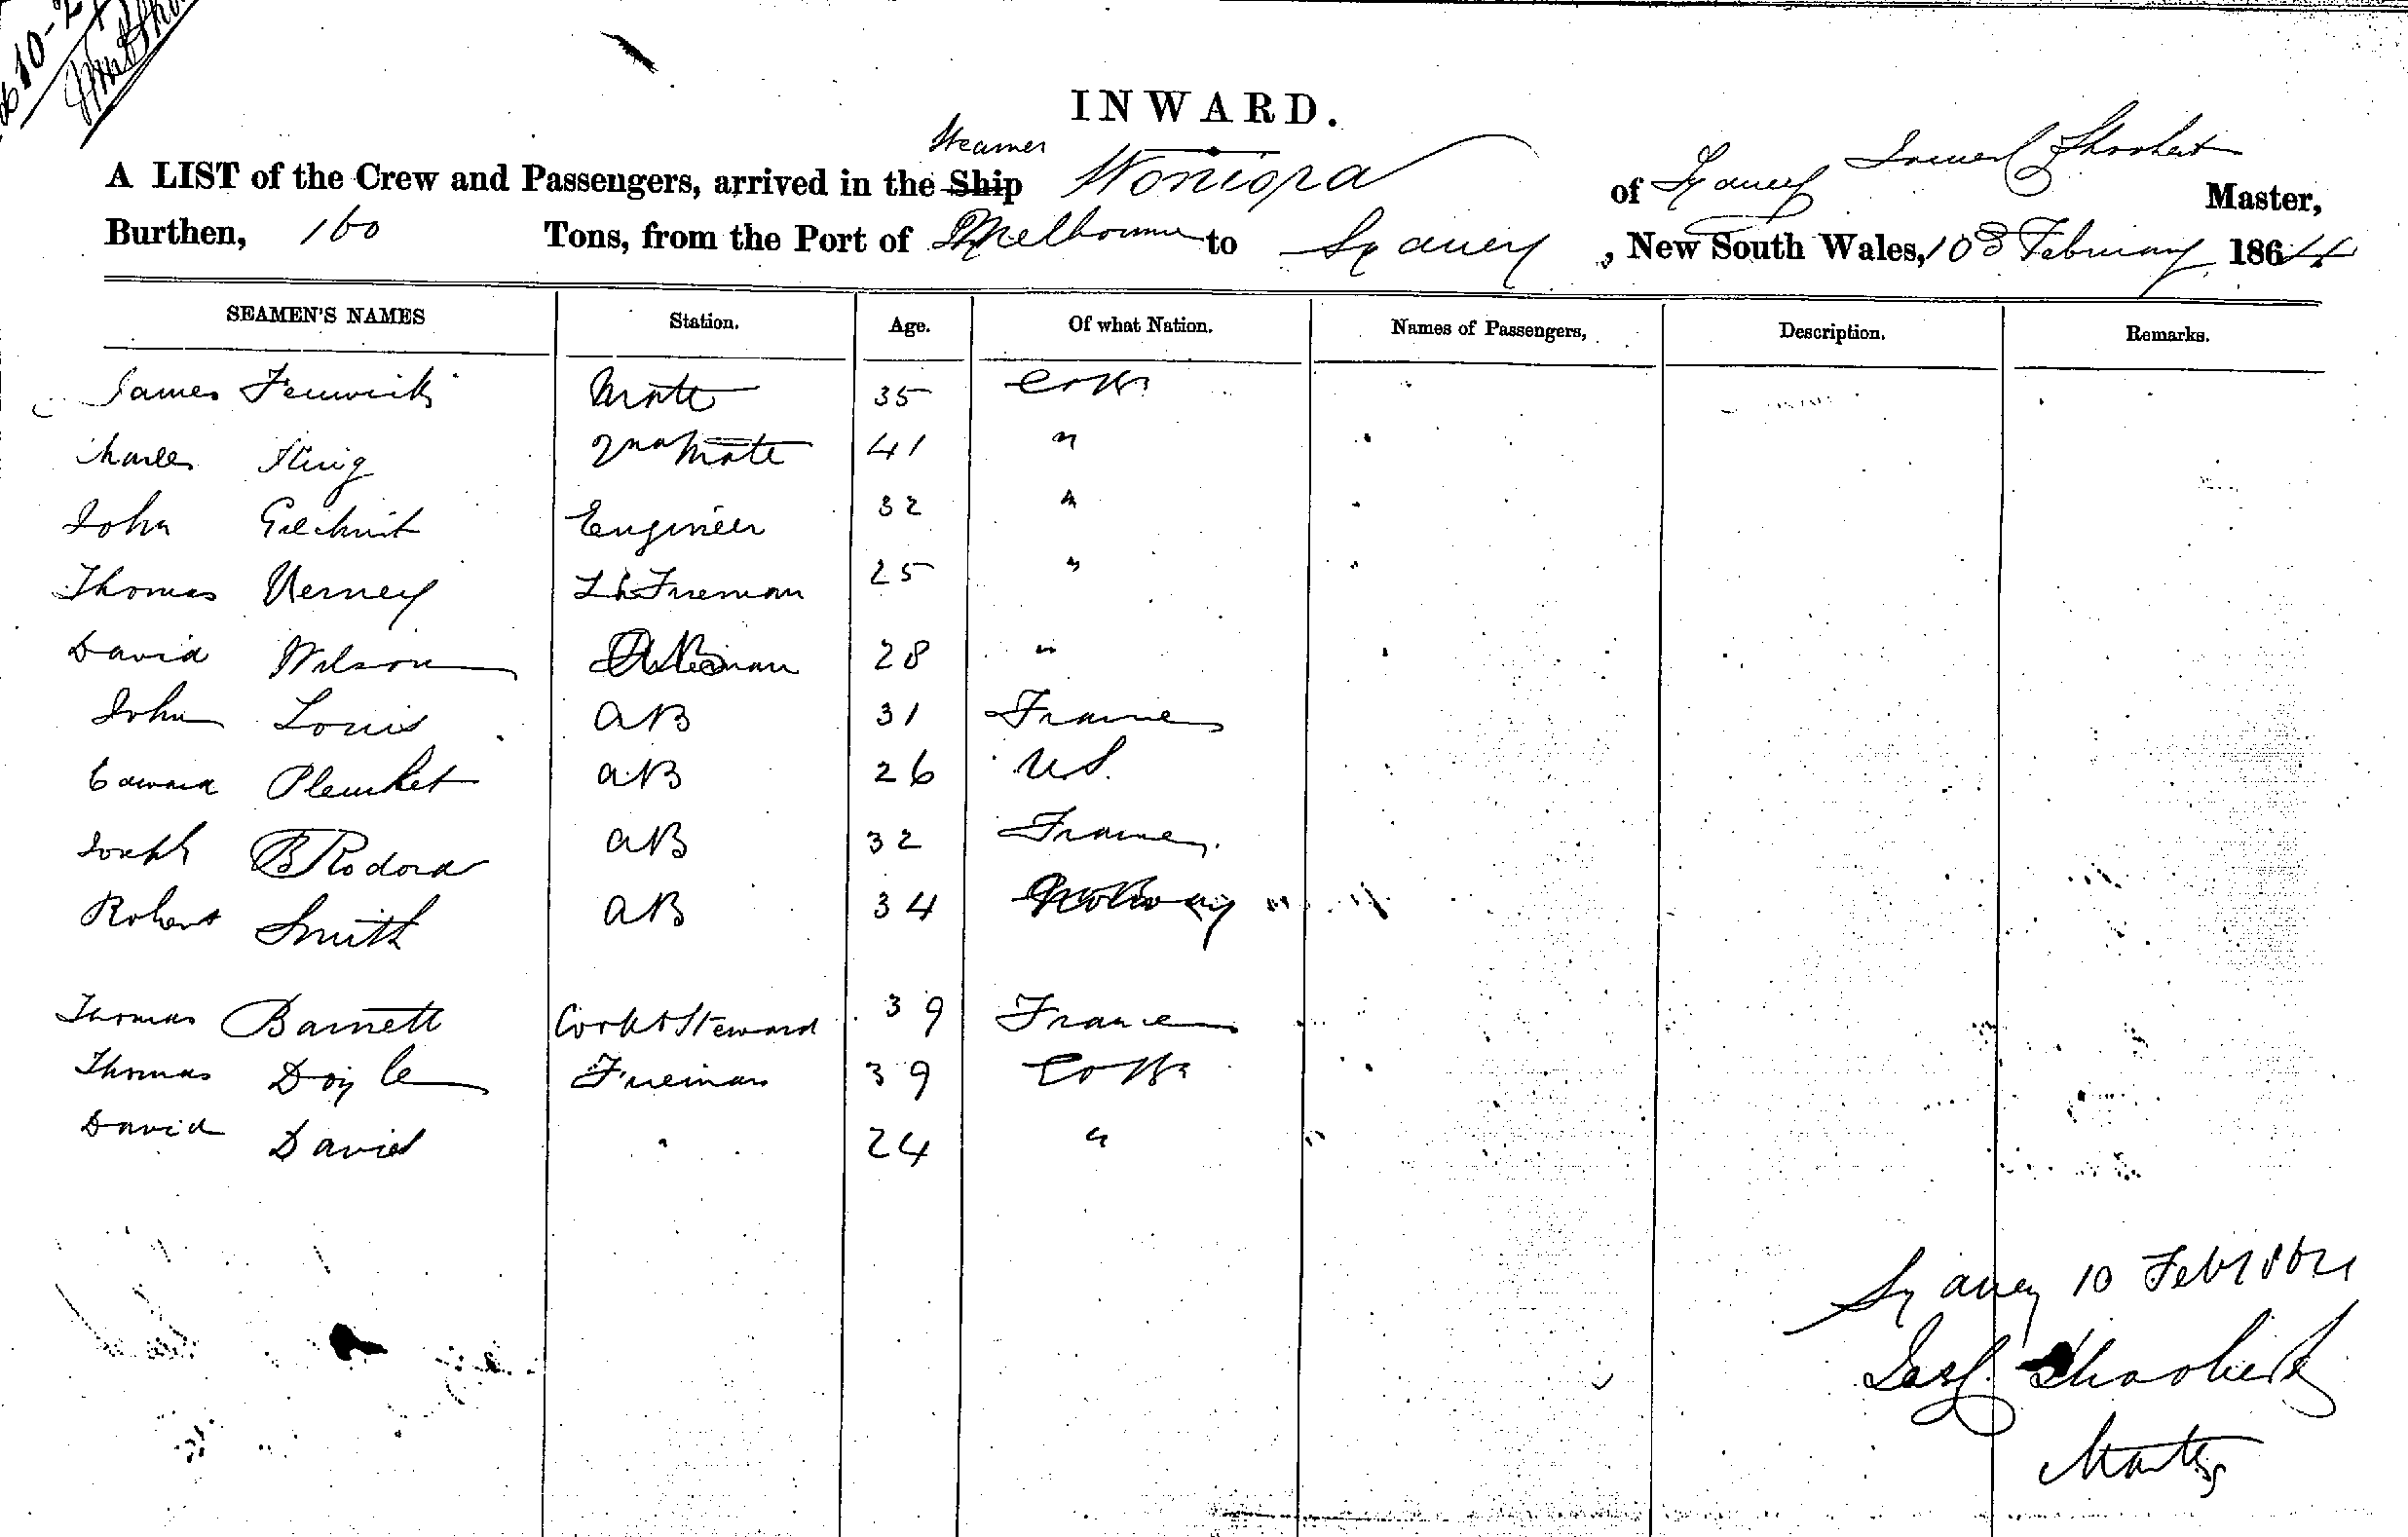 INWARD.
Steamer
A LIST of the Crew and Passengers, arrived in the Ship Woniora of Sydney James Shoobert Master,
Burthen, 160 Tons, from the Port of Melbourne to Sydney, New South Wales, 10 February 1864
SEAMEN'S NAMES Station. Age. Of what Nation. Names of Passengers, Description. Remarks.
James Fenwick Mate 35
Charles King 2nd Mate 41 "
John Gilchrist Engineer 32 "
Thomas Verney Fireman 25 "
David Wilson 28 "
John Louis AB 31 France
Edward Plunket AB 26 US.
Joseph B Rodord AB 32 France
Robert Smith AB 34 Norway
Thomas Barnett Cook & Steward 39 France
Thomas Doyle Fireman 39
David David " 24 "
Sydney 10 Feby 1864
Jas Shoobert
Master